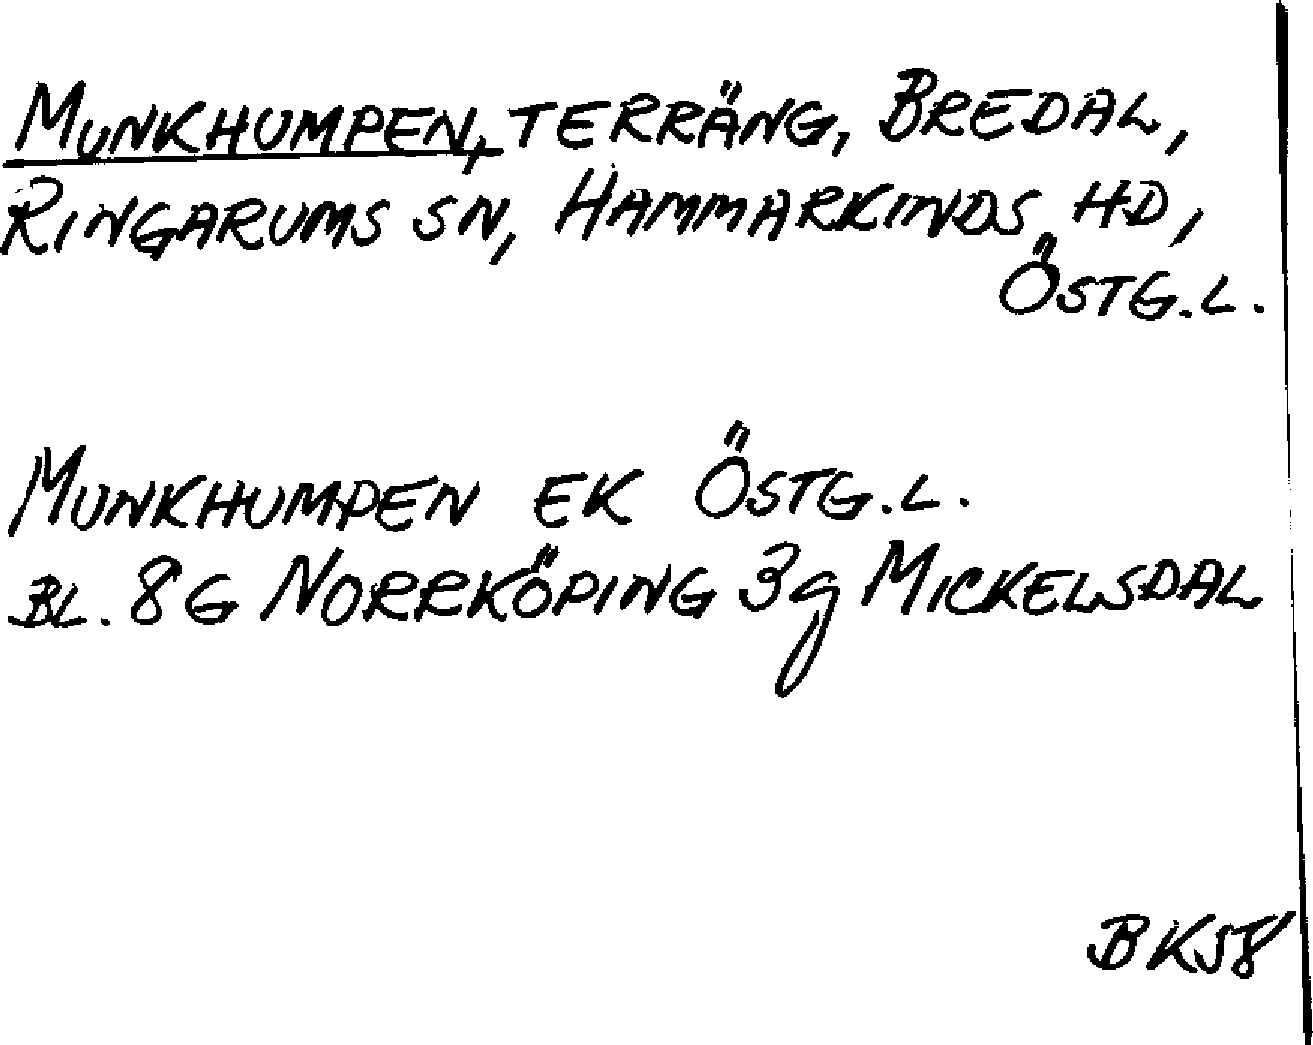 MUNKHUMPEN, TERRÄNG, BREDAL,
RINGARUMS SN, HAMMARKINDS HD,
ÖSTG.L.
MUNKHUMPEN EK ÖSTG.L.
BL. 8G NORRKÖPING 3g MICKELSDAL
BK58